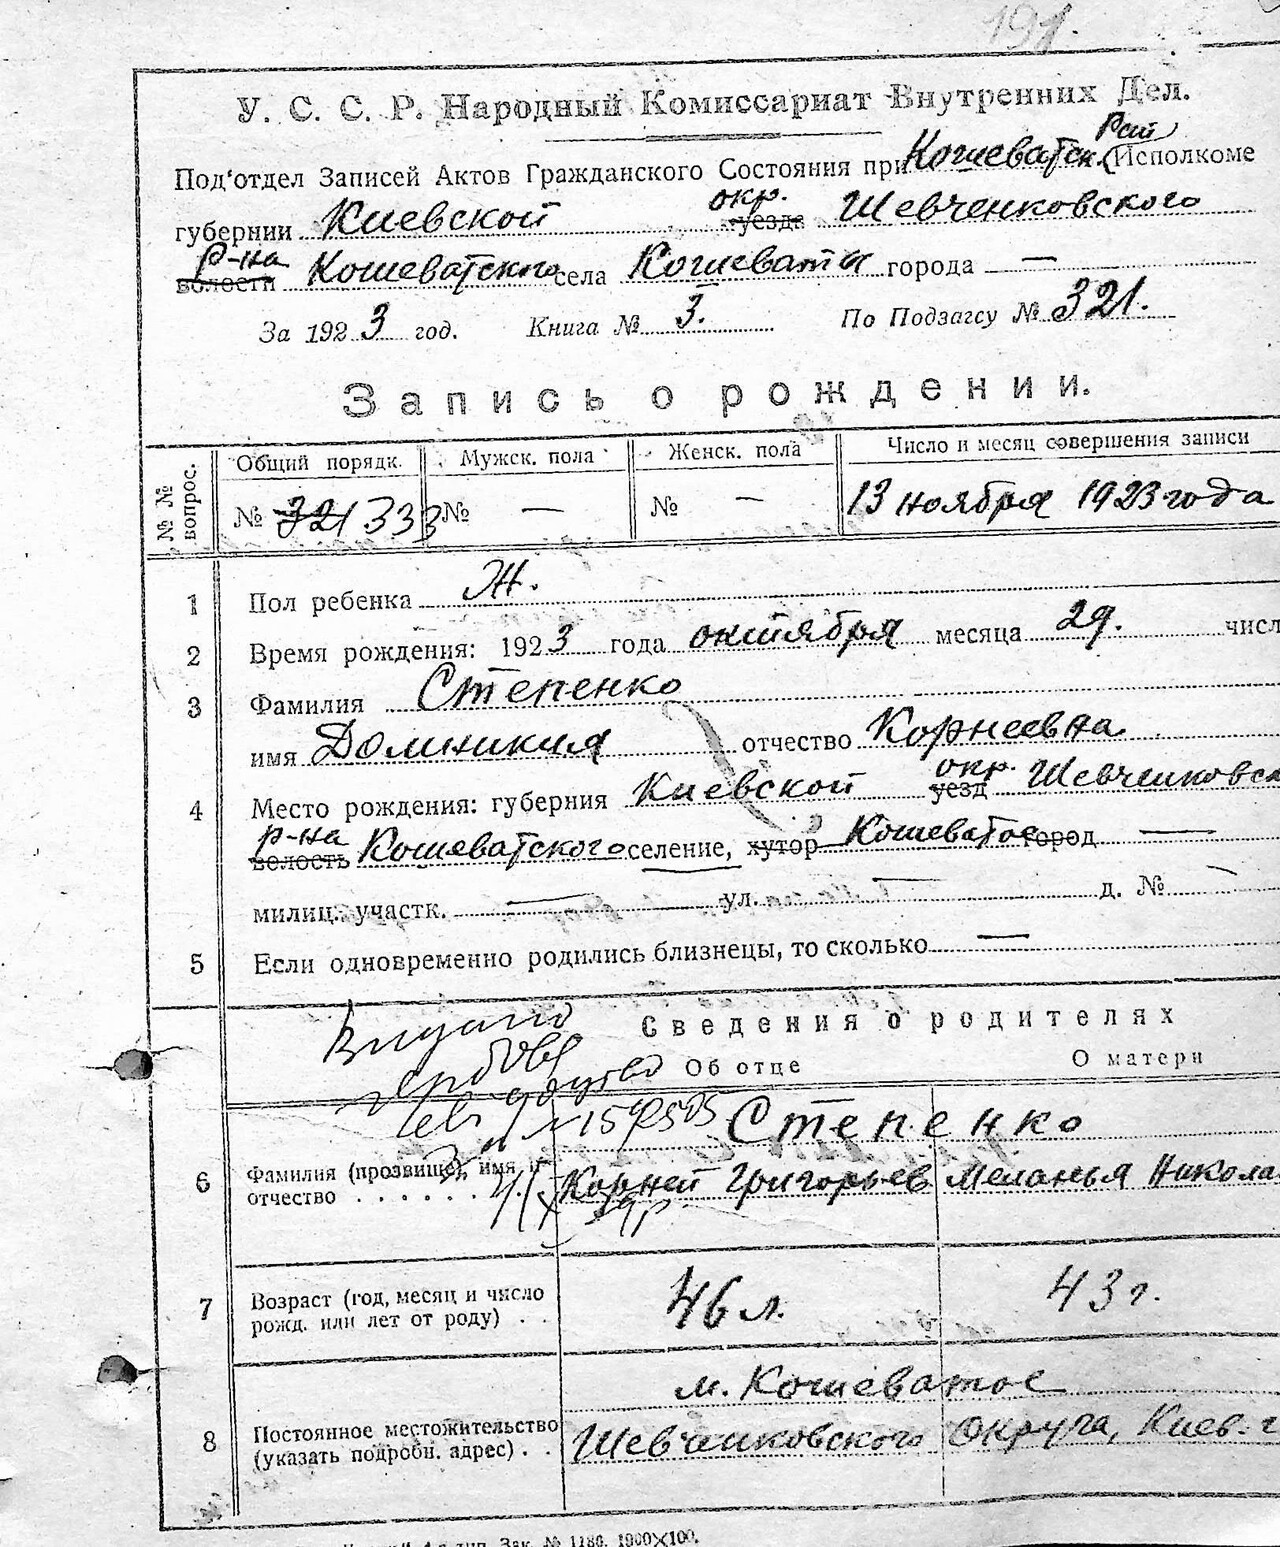 191.
У. С. С. Р. Народный Комиссариат Внутренних Дел.
Под'отдел Записей Актов Гражданского Состояния при Кошеватск. Рай Исполкоме
губернии Киевской окр. уезда Шевченковского
р-на волости Кошеватского села Кошеваты города —
За 1923 год. Книга № 3. По Подзагсу № 321.
Запись о рождении.
№ № вопрос. Общий порядк. Мужск. пола Женск. пола Число и месяц совершения записи
№ 321 333 № — № — 13 ноября 1923 года
1 Пол ребенка Ж.
2 Время рождения: 1923 года октября месяца 29. числ
3 Фамилия Степенко
имя Доминикия отчество Корнеевна
4 Место рождения: губерния Киевской окр. уезд Шевченковск
р-на волость Кошеватского селение, хутор Кошеватое город —
милиц. участк. — ул. — д. № —
5 Если одновременно родились близнецы, то сколько —
Сведения о родителях
Видано
Об отце О матери
Степенко
6 Фамилия (прозвище), имя и отчество . . . . . . Корней Григорьев Меланья Никола
7 Возраст (год, месяц и число рожд. или лет от роду) . . 46 л. 43 г.
м. Кошеватое
8 Постоянное местожительство (указать подробн. адрес) . . Шевченковского Округа, Киев. г
тип. Зак. № 1180. 1900×100.